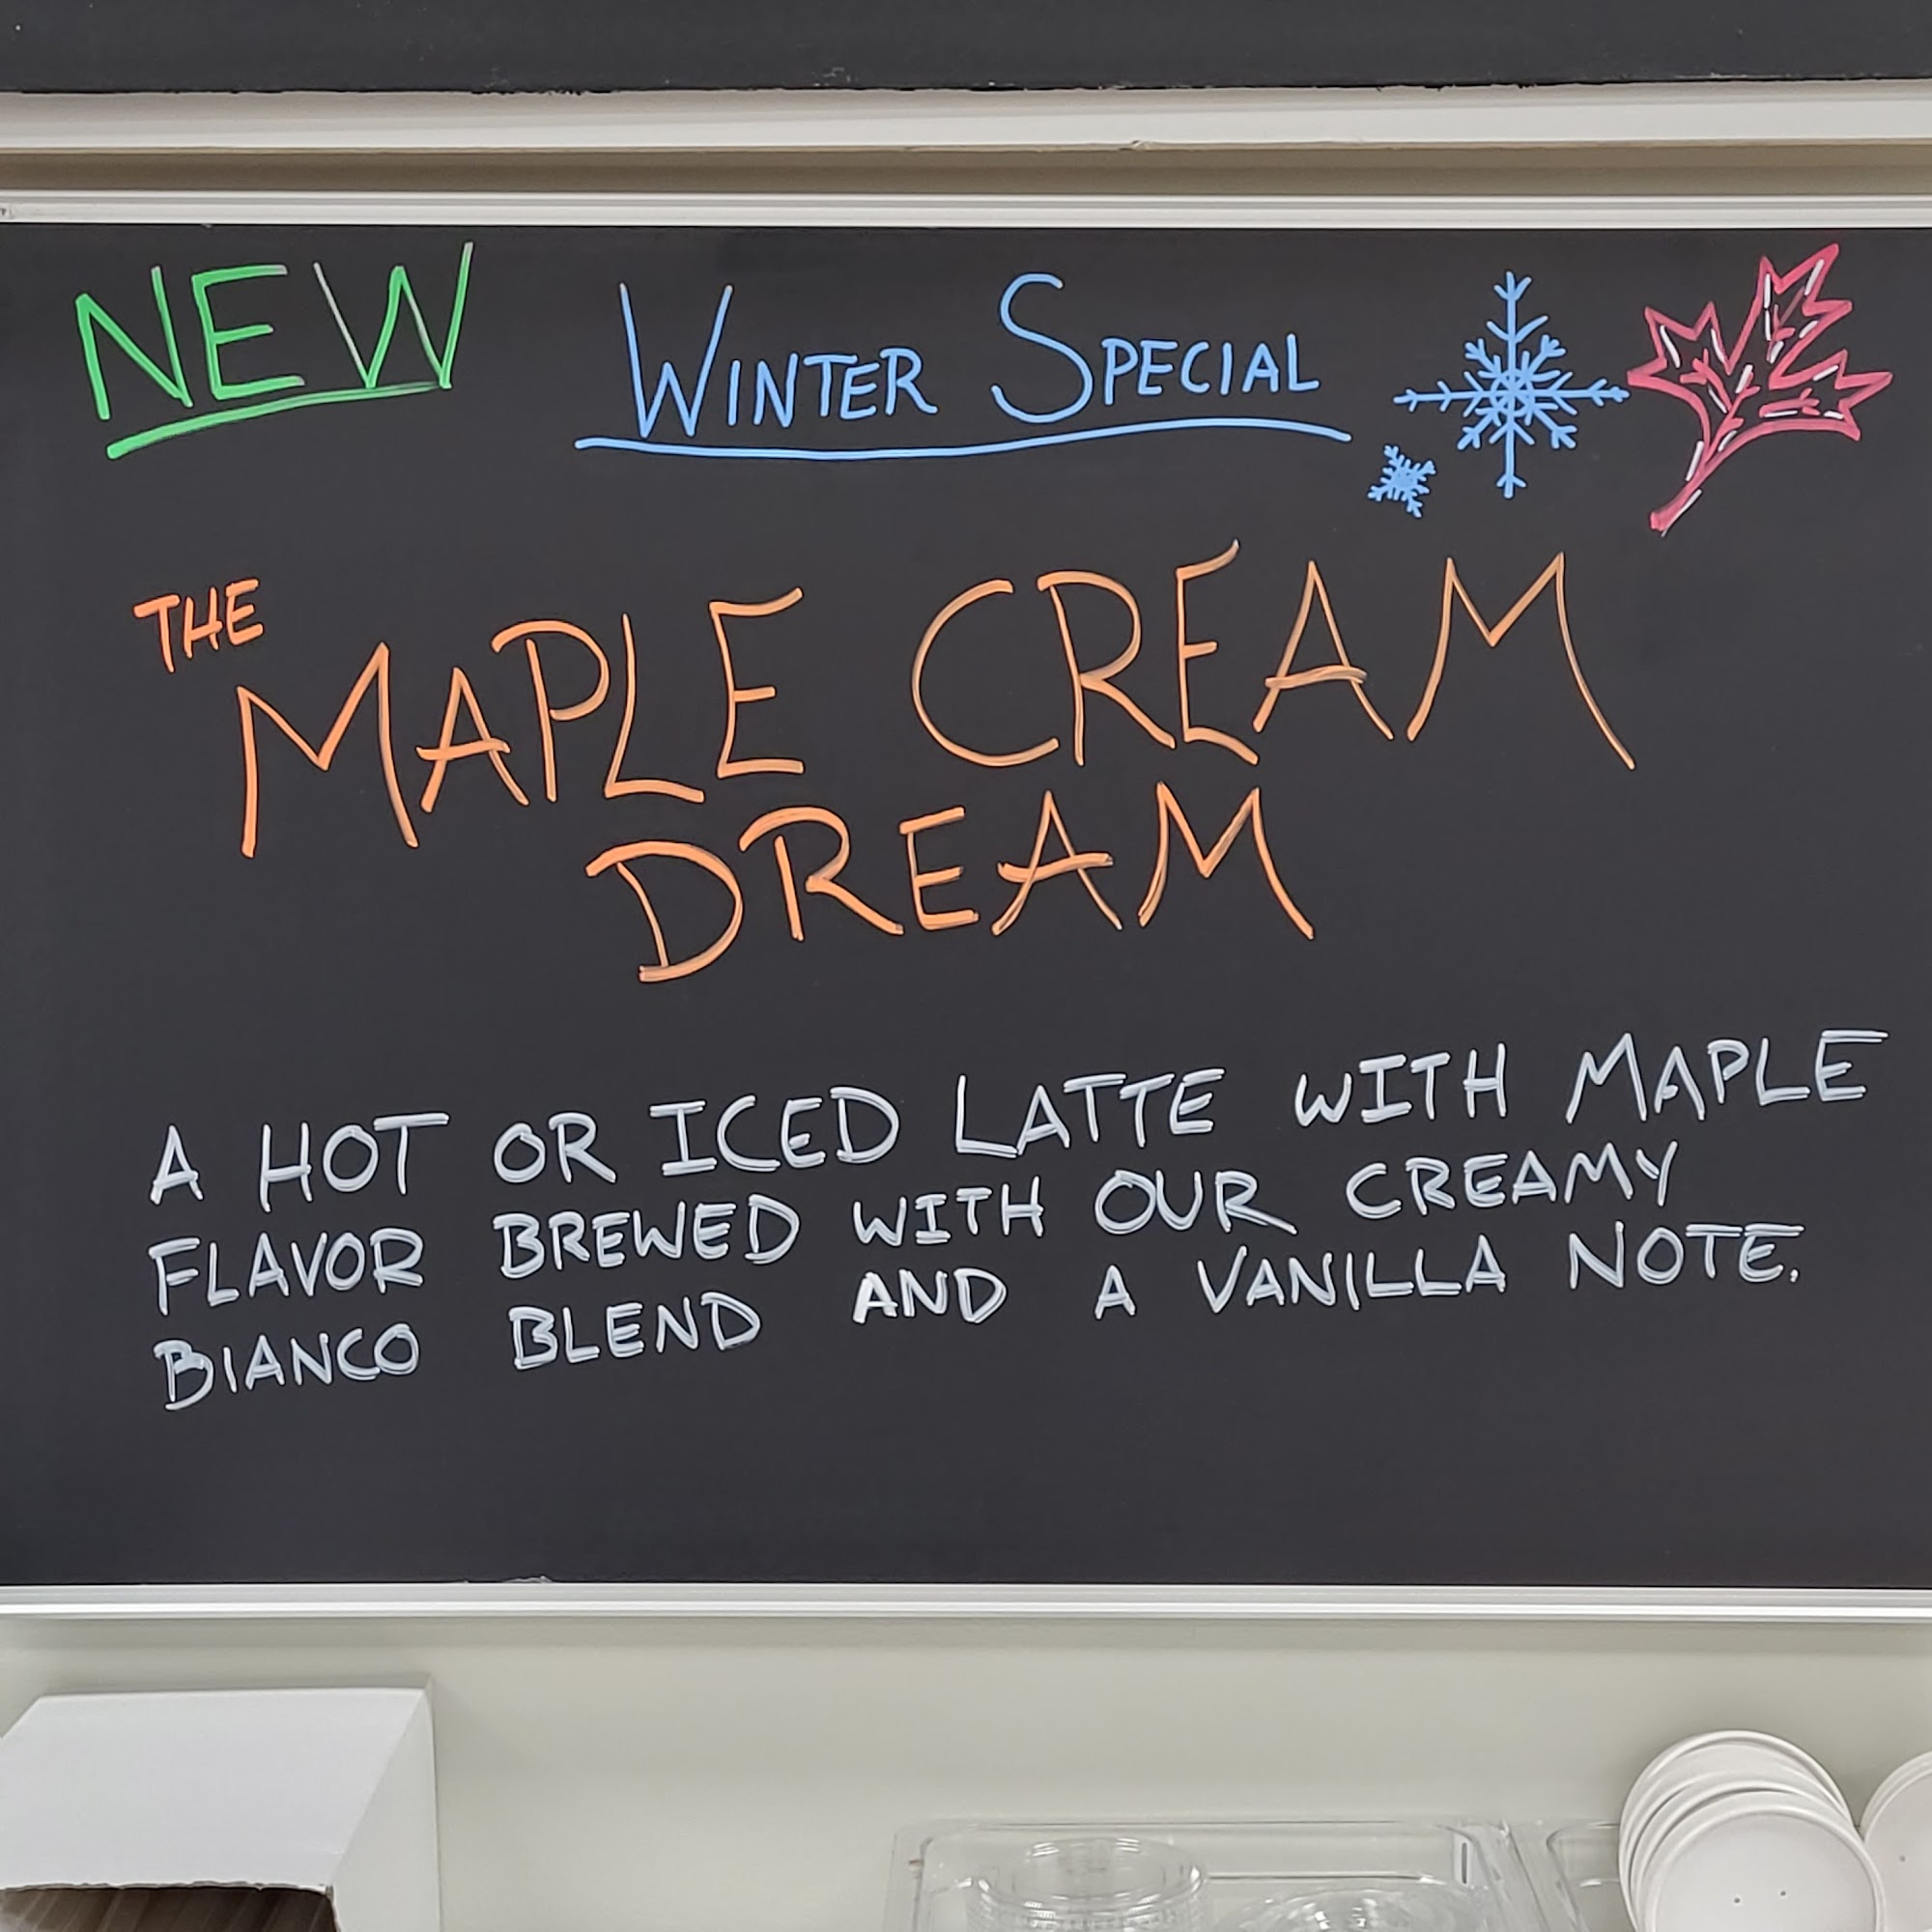 NEW WINTER SPECIAL
THE
MAPLE CREAM
DREAM
A HOT OR ICED LATTE WITH MAPLE
FLAVOR BREWED WITH OUR CREAMY
BIANCO BLEND AND A VANILLA NOTE.